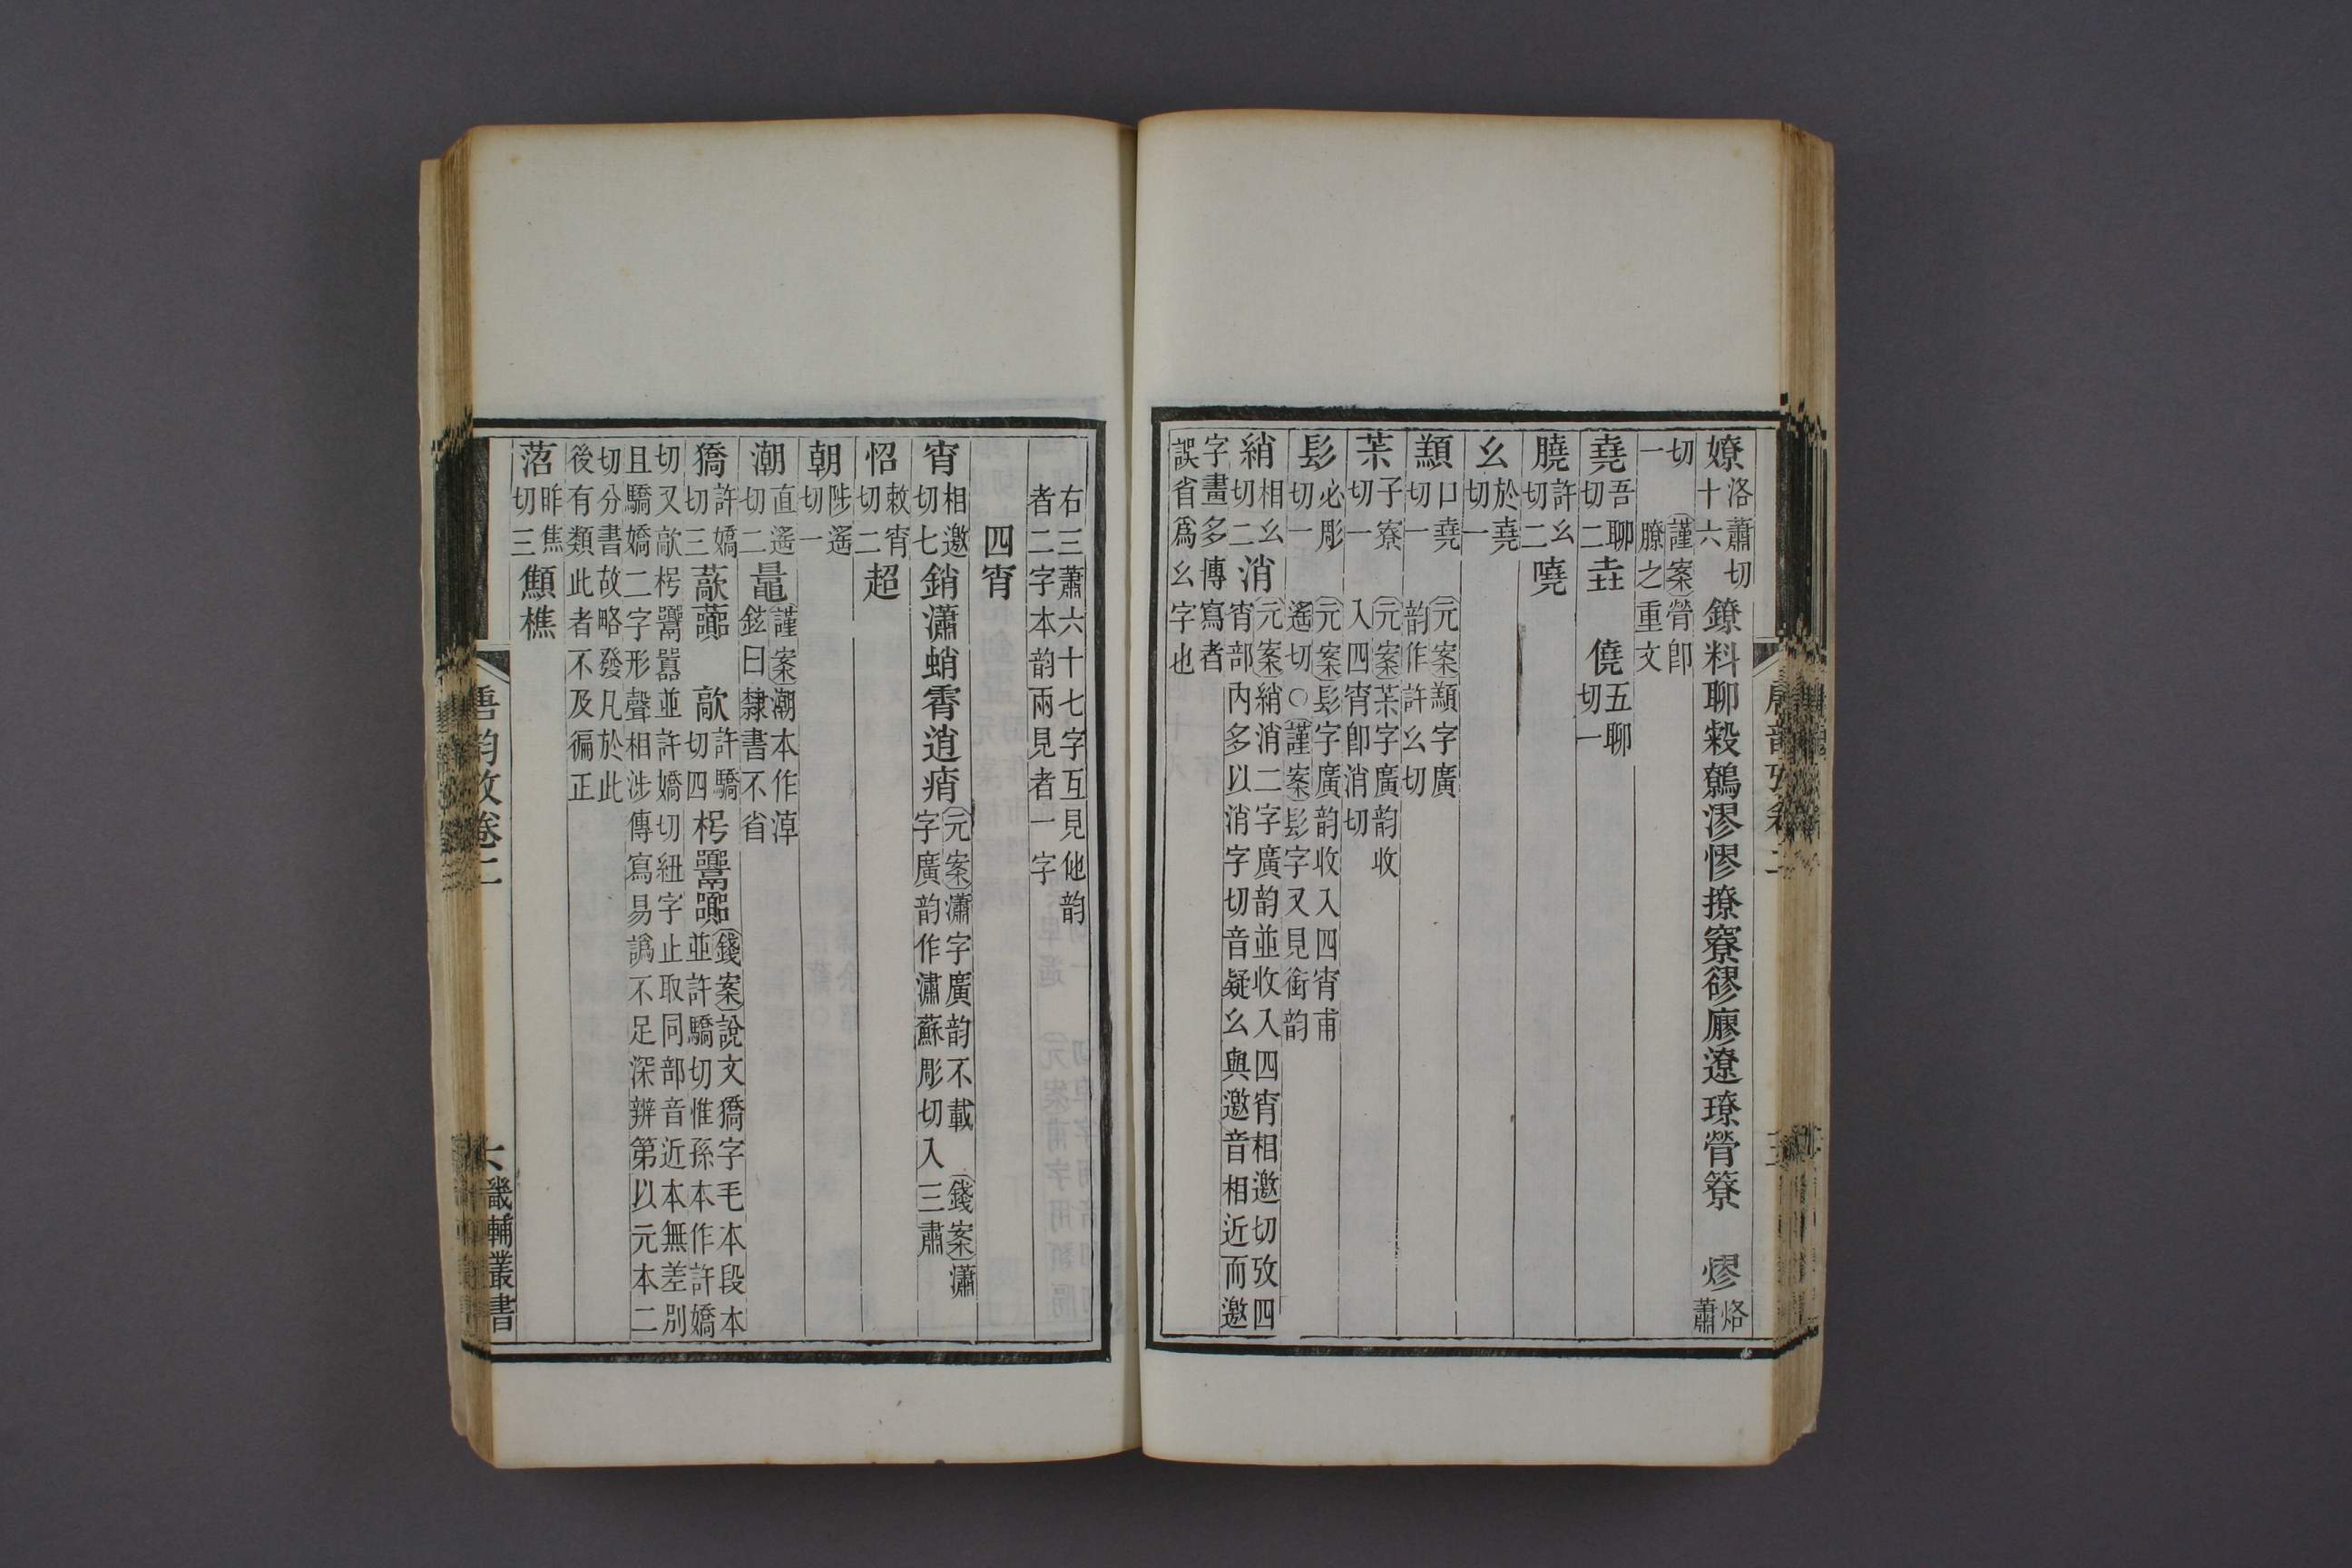 嫽洛蕭切十六鐐料聊敹鷯漻憀撩寮䝀廫遼璙膋簝 熮烙蕭
切一謹案膋卽膫之重文
堯吾聊切二垚 僥五聊切一
膮許幺切二嘵
幺於堯切一
顤口堯切一元案顤字廣韵作許幺切
芣子寮切一元案芣字廣韵收入四宵卽消切
髟必彫切一元案髟字廣韵收入四宵甫遙切○謹案髟字又見銜韵
綃相幺切二消元案綃消二字廣韵並收入四宵相邀切攷四宵部內多以消字切音疑幺與邀音相近而邀
字畫多傳寫者誤省爲幺字也
右三蕭六十七字互見他韵者二字本韵兩見者一字
四宵
宵相邀切七銷瀟蛸霄逍痟元案瀟字廣韵不載 錢案瀟字廣韵作潚蘇彫切入三肅
怊敕宵切二超
朝陟遙切一
潮直遙切二鼂謹案潮本作淖鉉曰隸書不省
獢許嬌切三歊藃 歊許驕切四枵嚻囂錢案說文獢字毛本段本並許驕切惟孫本作許嬌
切又歊枵囂嚻並許嬌切紐字止取同部音近本無差別且驕嬌二字形聲相涉傳寫易譌不足深辨第以元本二
切分書故略發凡於此後有類此者不及徧正
菬昨焦切三顦樵
唐韵攷卷二
六 畿輔叢書